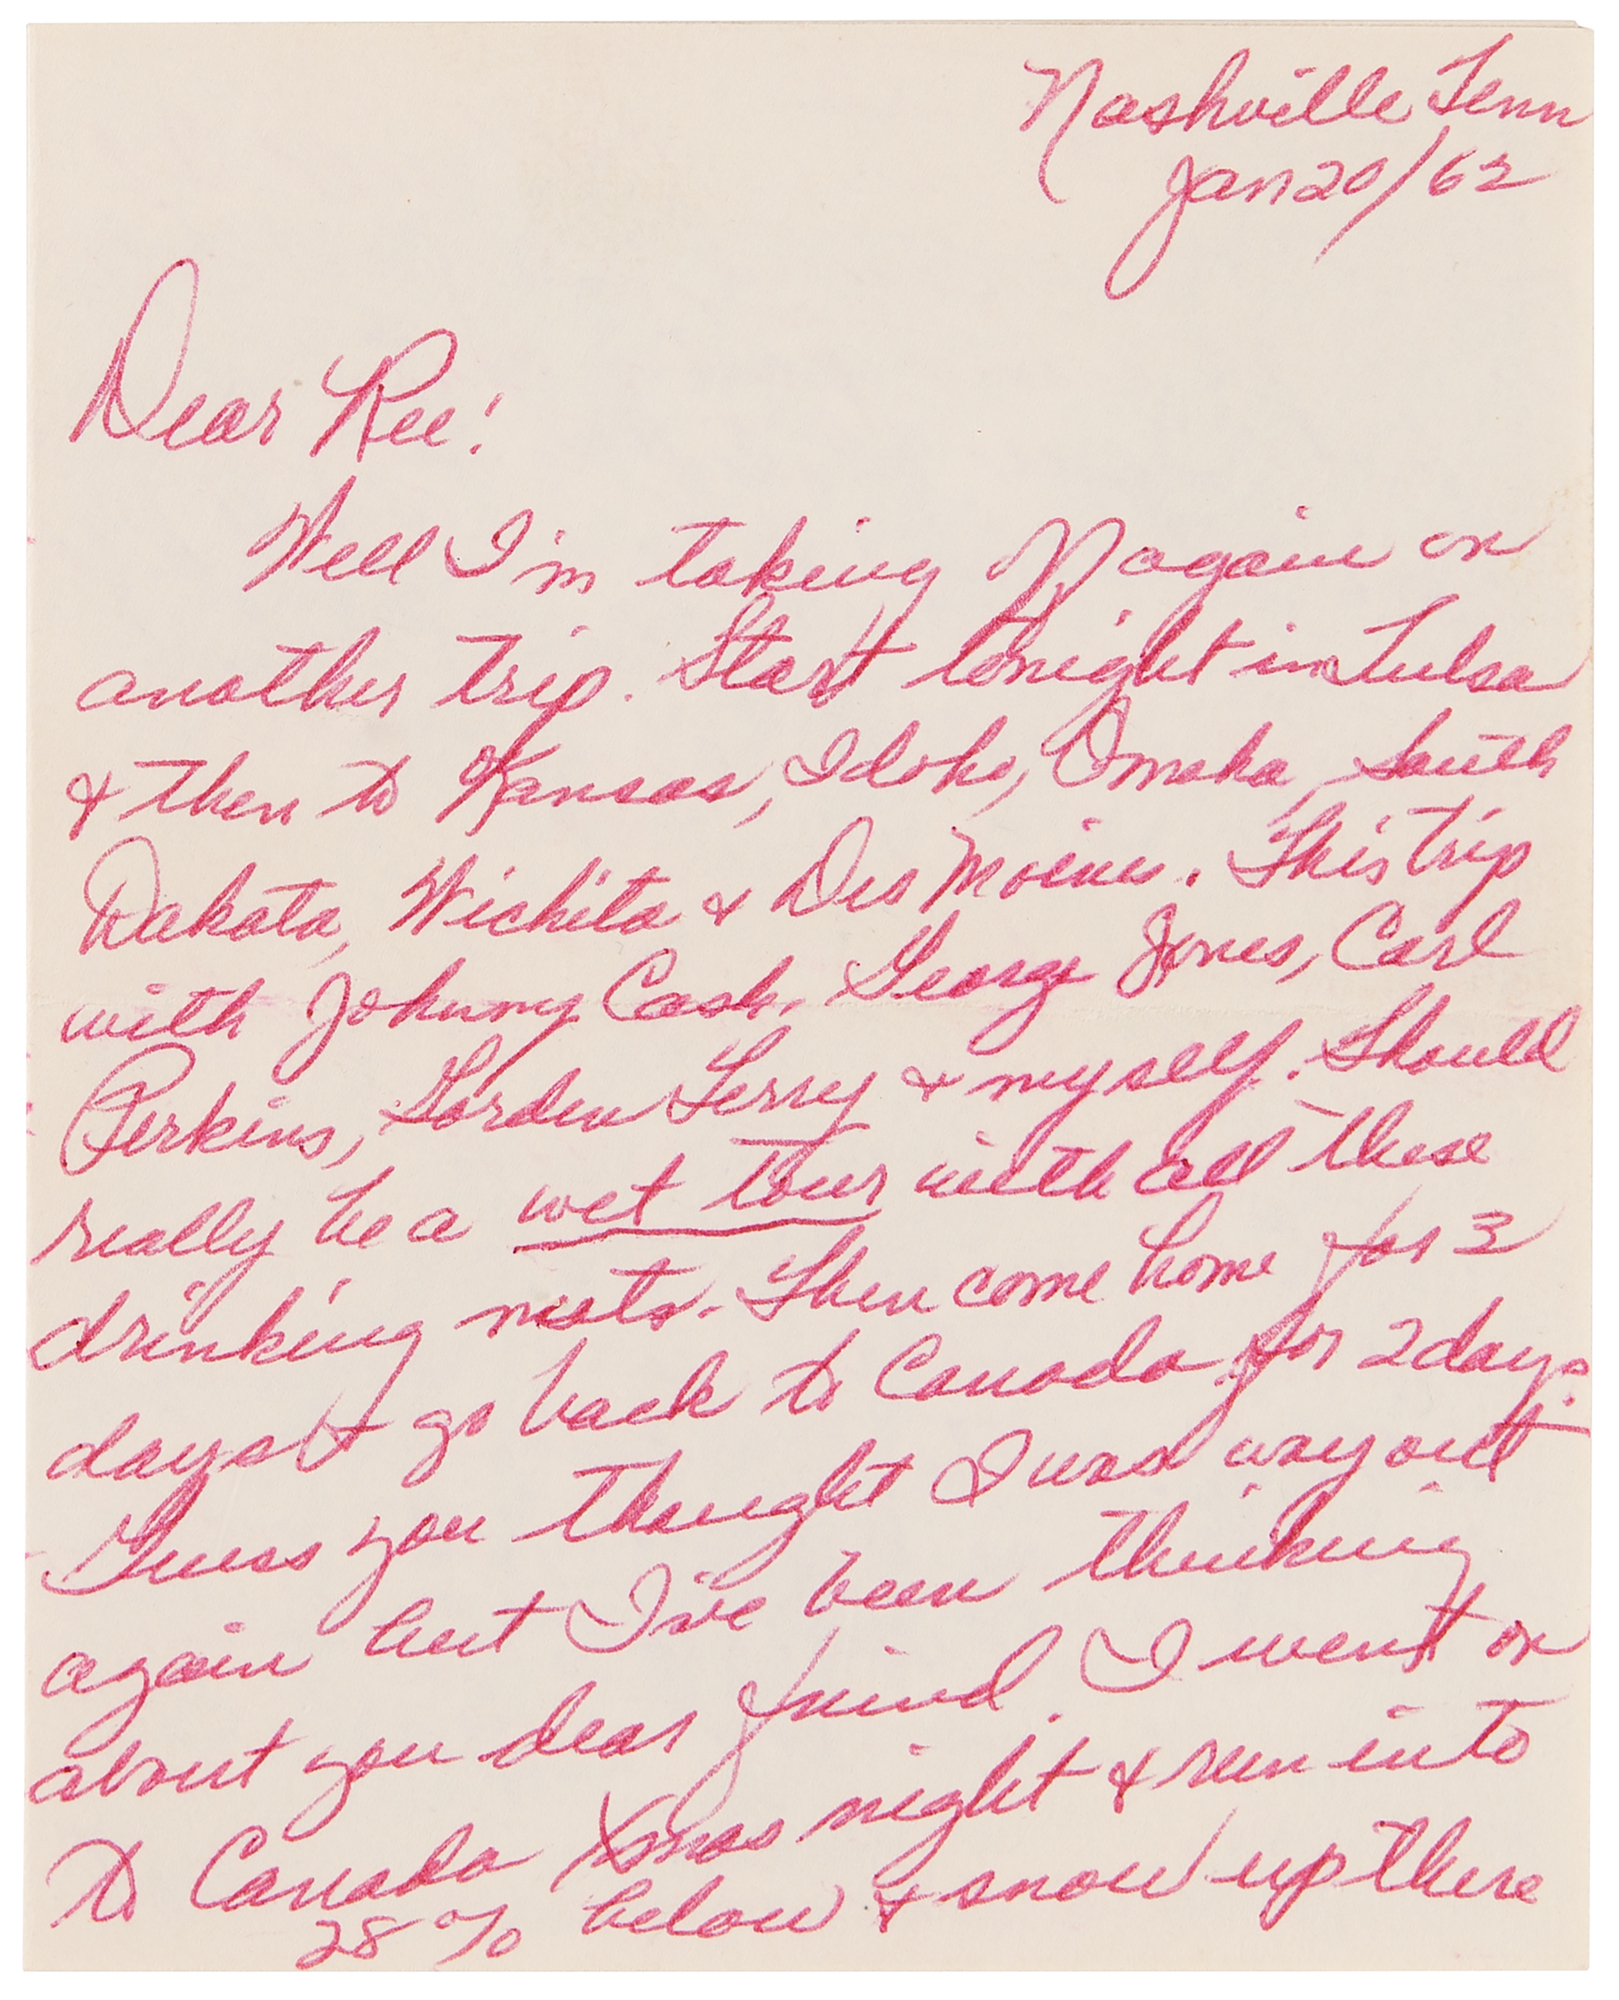 Nashville Tenn
Jan 20/62
Dear Ree!
Well I'm taking again on
another trip. Start tonight in Tulsa
& then to Kansas, Idoho, Omaha, South
Dakota, Wichita & Des Moines. This trip
with Johnny Cash, George Jones, Carl
Perkins, Gorden Terry & myself. Should
really be a wet tour with all these
drinking nuts. Then come home for 3
days & go back to Canada for 2 days.
Guess you thought I was way out
again but I've been thinking
about you dear friend. I went on
to Canada Xmas night & run into
28% below & snow up there